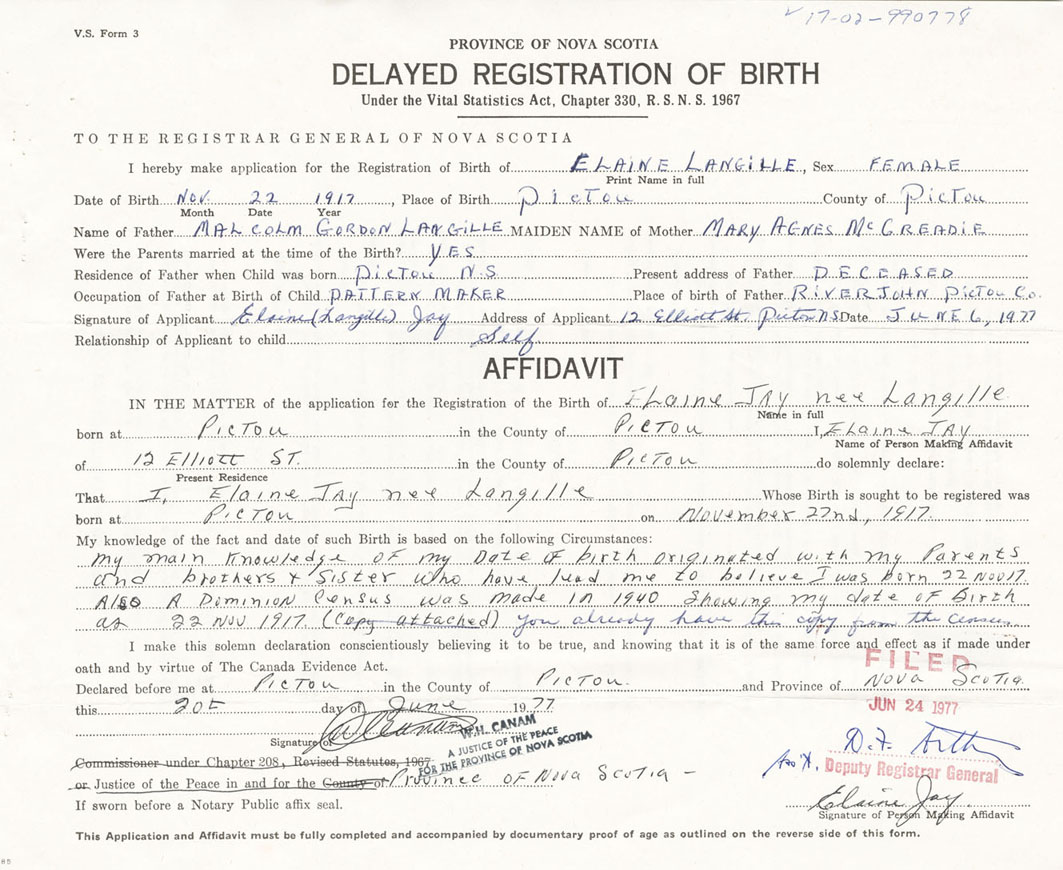 17-02-990778
V.S. Form 3
PROVINCE OF NOVA SCOTIA
DELAYED REGISTRATION OF BIRTH
Under the Vital Statistics Act, Chapter 330, R. S. N. S. 1967
TO THE REGISTRAR GENERAL OF NOVA SCOTIA
I hereby make application for the Registration of Birth of ELAINE LANGILLE, Sex FEMALE
Print Name in full
Date of Birth NOV. 22 1917, Place of Birth Pictou County of Pictou
Month Date Year
Name of Father MALCOLM GORDON LANGILLE MAIDEN NAME of Mother MARY AGNES McGREADIE
Were the Parents married at the time of the Birth? YES
Residence of Father when Child was born Pictou N.S Present address of Father DECEASED
Occupation of Father at Birth of Child PATTERN MAKER Place of birth of Father RIVER JOHN Pictou Co.
Signature of Applicant Elaine (Langille) Jay Address of Applicant 12 Elliott St. Pictou NS Date JUNE 6, 1977
Relationship of Applicant to child Self
AFFIDAVIT
IN THE MATTER of the application for the Registration of the Birth of Elaine JAY nee Langille
Name in full
born at Pictou in the County of Pictou I, Elaine JAY
Name of Person Making Affidavit
of 12 Elliott ST. in the County of Pictou do solemnly declare:
Present Residence
That I, Elaine JAY nee Langille Whose Birth is sought to be registered was
born at Pictou on November 22nd, 1917.
My knowledge of the fact and date of such Birth is based on the following Circumstances:
My main Knowledge OF my Date of birth originated with my Parents
and brothers & Sister who have lead me to believe I was born 22 Nov 17.
Also A Dominion Census was made in 1940 Showing my date of Birth
as 22 Nov 1917. (Copy attached) You already have this copy from the census
I make this solemn declaration conscientiously believing it to be true, and knowing that it is of the same force and effect as if made under
oath and by virtue of The Canada Evidence Act.
FILED
Declared before me at Pictou in the County of Pictou. and Province of Nova Scotia.
this 20t day of June 19 77
JUN 24 1977
Signature of
W.H. CANAM
A JUSTICE OF THE PEACE
FOR THE PROVINCE OF NOVA SCOTIA
Commissioner under Chapter 208, Revised Statutes, 1967
Deputy Registrar General
or Justice of the Peace in and for the County of Province OF Nova Scotia -
If sworn before a Notary Public affix seal.
Elaine Jay.
Signature of Person Making Affidavit
This Application and Affidavit must be fully completed and accompanied by documentary proof of age as outlined on the reverse side of this form.